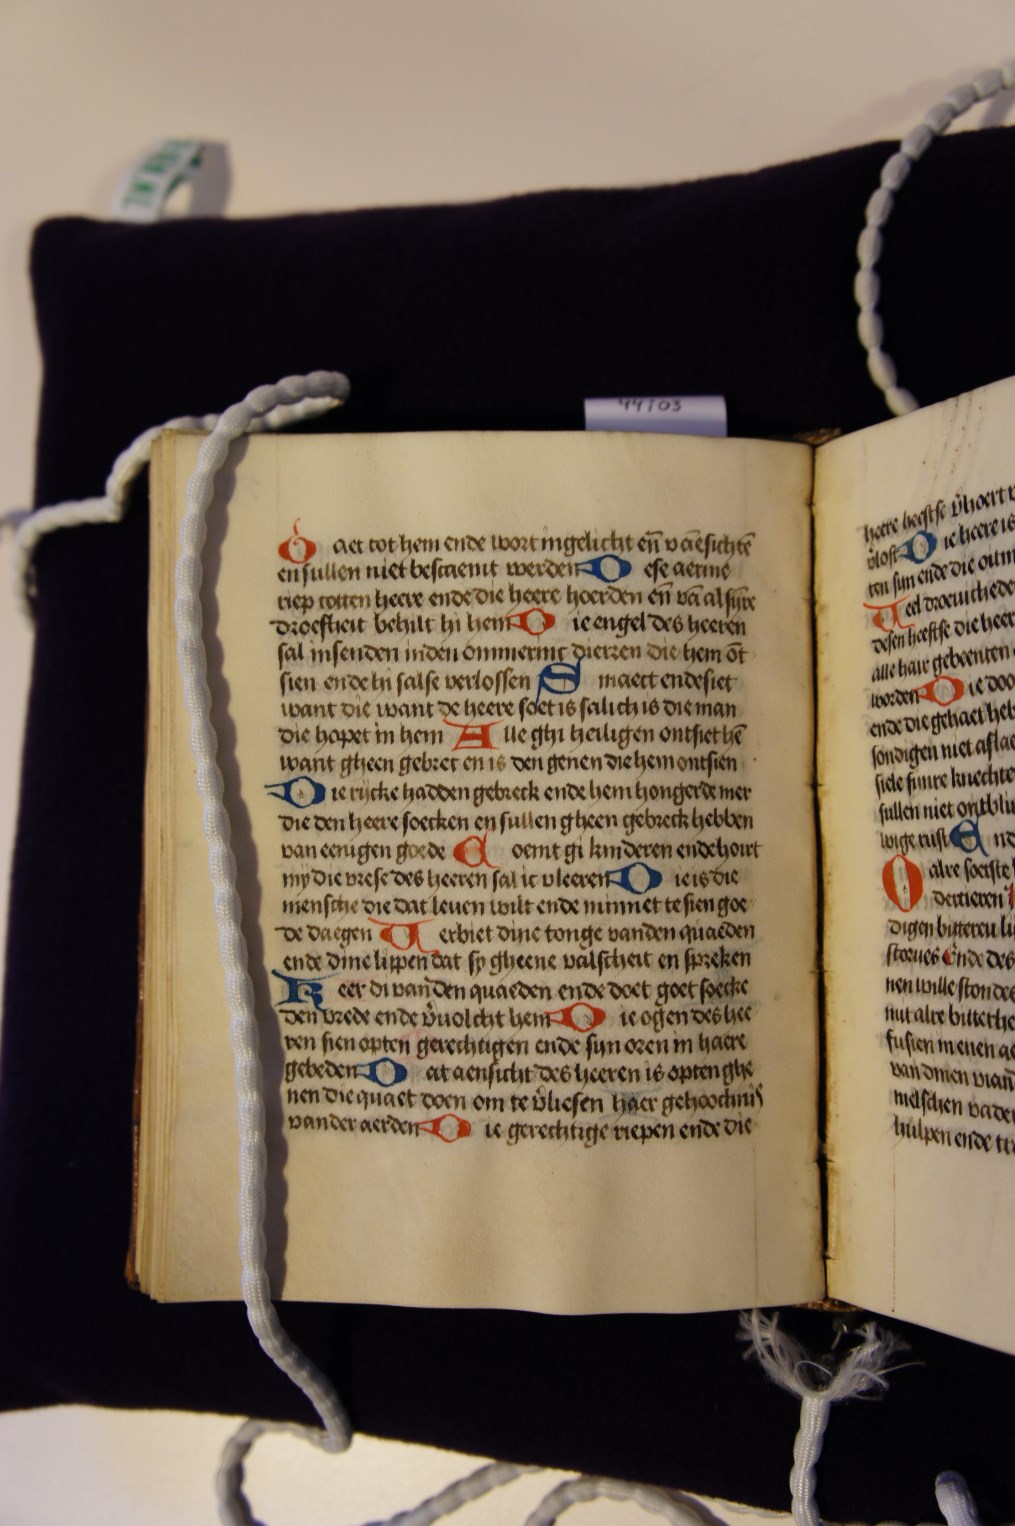 44/03
Gaet tot hem ende wort ingelicht en̄ v aensichtē
en sullen niet bescaemt werden Dese aerme
riep totten heere ende die heere hoerden en̄ vā al sijre
droefheit behilt hi hem Die engel des heeren
sal insenden inden ommerinc dierren die hem ōt
sien ende hi salse verlossen Smaect ende siet
want die want de heere soet is salich is die man
die hopet in hem Alle ghi heiligen ontsiet hē
want gheen gebret en is den genen die hem ontsien
Die rijcke hadden gebreck ende hem hongerde mer
die den heere soecken en sullen gheen gebreck hebben
van eenigen goede Coemt gi kinderen ende hoirt
my die vrese des heeren sal ic v leeren Die is die
mensche die dat leuen wilt ende minnet te sien goe
de daegen Verbiet dine tonge vanden quaeden
ende dine lippen dat sy gheene valscheit en spreken
Keer di vanden quaeden ende doet goet soecke
den vrede ende v̄uolcht hem Die ogen des hee
ren sien opten gerechtigen ende sijn oren in haere
gebeden Dat aensicht des heeren is opten ghe
nen die quaet doen om te v̄liesen haer gehoochnis
vander aerden Die gerechtige riepen ende die
heere heeftse v̄hoert
v̄lost Die heere is
ten sijn ende die oitm
Veel droeuicheden
desen heeftse die heer
alle hair gebeenten
worden Die doo
ende die gehaet heb
sondigen niet aflae
siele sijnre knechte
sullen niet
wige rust End
O alre soetste
dertieren
digen bitteren li
Ende des
nen wille ston des
nut alre bitterhe
van dinen
melschen vader
hulpen ende